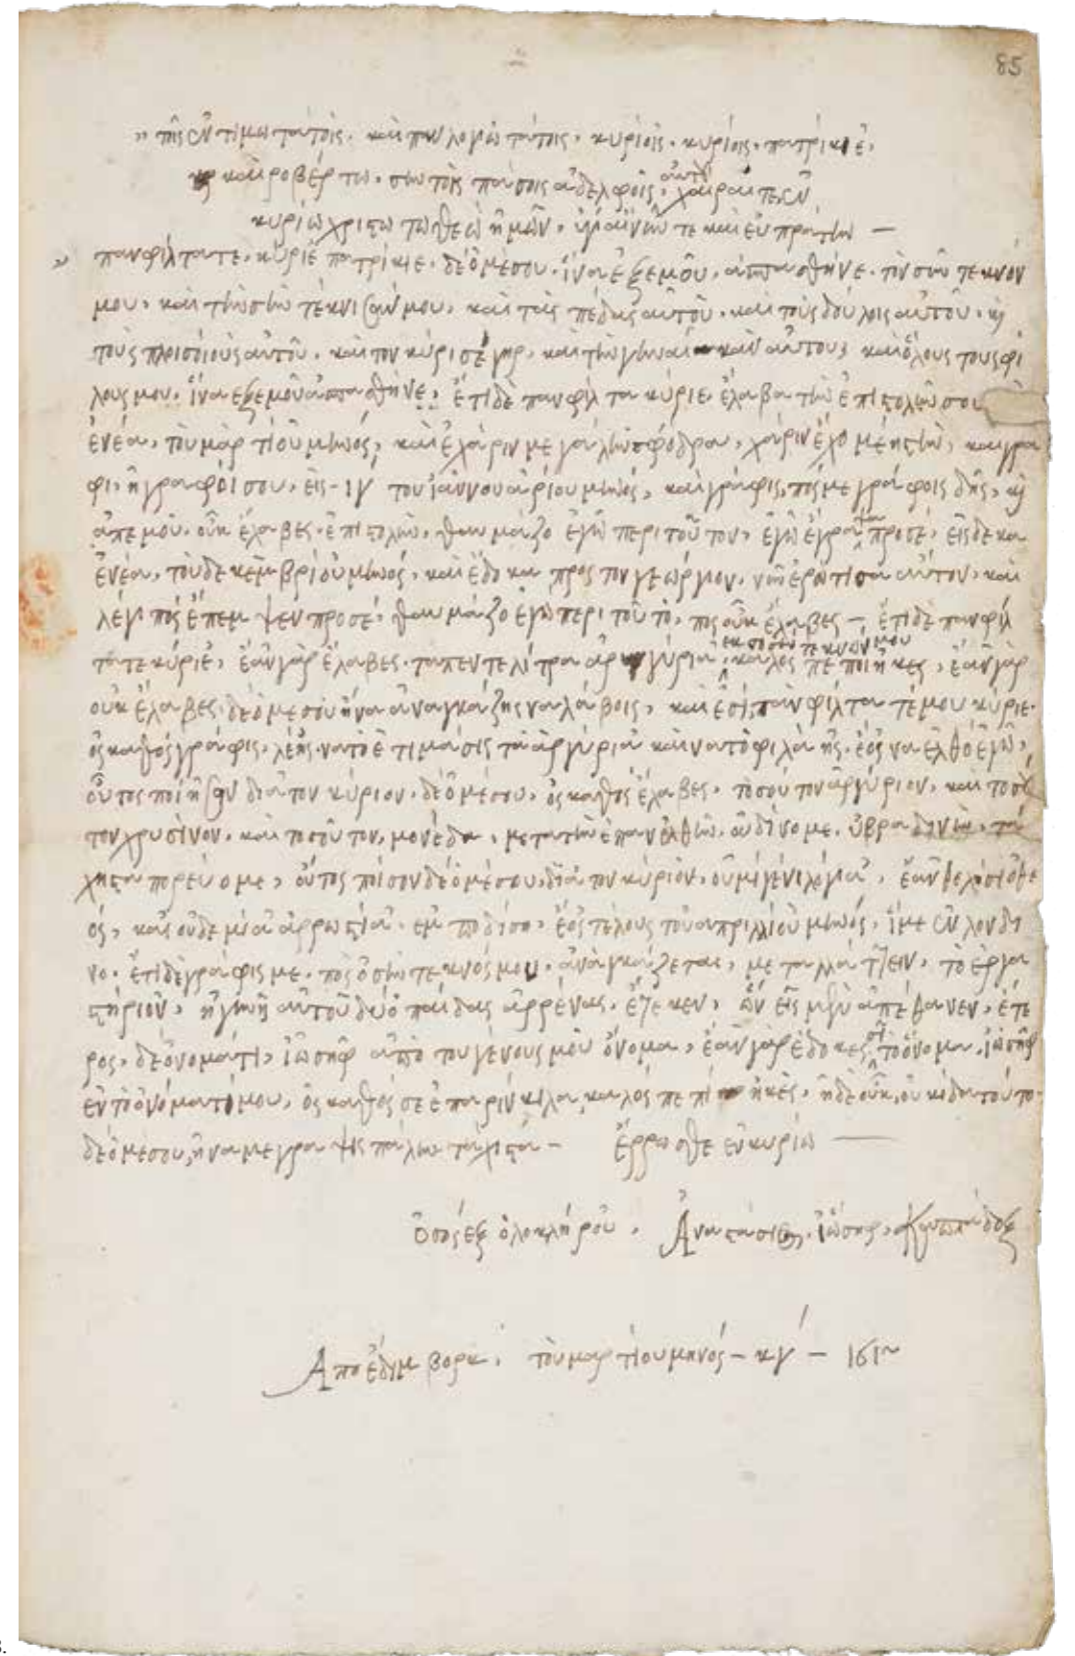 85
τῆς ἐντιμωτάτοις. καὶ πανλογιωτάτοις, κυρίοις. κυρίοις. πατρίκιε.
καὶ ροβέρτω. σὺν τοῖς πάσοις ἀδελφοῖς, αὐτοῦ χαίραιτε ἐν
κυρίω χριστω τω θεω ἡμῶν, ὑγιαίνειν τε καὶ εὐπράτειν —
πανφίλτατε, κύριε πατρίκιε. δέομέ σου. ἵνα ἐξ ἐμοῦ, ἀσπασθῆνε. τὸν σὺν τεκνόν
μου, καὶ τὴν σὴν τέκνισάν μου, καὶ τὰς πέδας αὐτοῦ. καὶ τοὺς δούλοις αὐτοῦ. κὶ
τοὺς πλισοίους αὐτοῦ. καὶ τον κύρι σέγηρ, καὶ τὴν γυναίκαν αὐτου, καὶ ὅλους τους φί
λους μου. ἵνα εξ εμοῦ ἀσπασθῆνε, ἔτι δὲ πανφίλτα κύριε, ἔλαβα τὴν ἐπιστολήν σου
ἐνέα, τοῦ μαρτίου μηνός, καὶ ἐχάριν μεγάλην σφόδρα, χάριν ἔχο μέγιστην, καὶ γρα
φι, ἡ γραφοί σου, εἰς - ιγ του ἰαννουαρίου μηνός, καὶ γράφις, πός με γράφοις δῆς, κὶ
ἀπ ἐμού. οὐκ ἔλαβες ἐπιστολήν, θαυμάζο ἐγὼ περὶ τοῦτον, ἐγὼ ἔγραψα προσέ, εἰς δεκα
ἐνέα, τοῦ δεκεμβρίου μηνός, καὶ ἔδοκα προς τον γεώργιον, νῦν ἐρώτισα αὐτον, καὶ
λέγι πός ἔπεμψεν προσέ, θαυμάζο ἐγὼ περι τοῦτο, πος οὐκ ἔλαβες — ἔτι δὲ πανφίλ
τατε κύριέ, ἐὰν γὰρ ἔλαβες. τα πεντε λίτρα ἀργύρια, ἐκ τοῦ σοῦ τεκνόν μου καλὸς πεποίηκες, ἐὰν γὰρ
οὐκ ἔλαβες. δέομέ σου ἥνα ἀναγκάζης να λάβοις, καὶ ἐσί, πανφίλτατέ μου κύριε.
ὁς καθὸς γράφις, λέης. να τὸ ἐτιμάσις τὰ ἀργύρια καὶ να τὸ φιλάης. ἐὸς να ἐλθὸ ἐγὼ,
οὕτος ποίησον δια τον κύριον. δέομέ σου, ὁς καθὸς ἔλαβες. τοσούτον ἀργύριον, καὶ τοσοῦ
τον χρυσίνον. καὶ τοσοῦτον, μονέδα, μετα τὴν ἐπανελθὴν. οὐ δίνομε. ὐβραδινὴν, τά
χηστα πορεύομε, οὕτος ποίσον δέομέ σου, διὰ τον κύριον, οὐ μὶ γένι λόγια, ἐὰν θελίσι ὁ θε
ός, καὶ οὐδε μία ἀρρωστία. εμποδίση, ἐὸς τέλους τοῦ απριλλίου μηνός, ἶμε ἐν λονδί
νο. ἔτι δὲ γράφις μέ. πὸς ὁ σὴν τεκνός μου. ἀναγκάζεται, μεταλλάττειν, τὸ ἐργα
στήριον, ἡ γυνὴ αὐτοῦ δυὸ παίδας ἀρρένας. ἔτεκεν, ὧν εἷς μὲν ἀπέθανεν, ἕτε
ρος, δὲ ὀνοματι, ἰωσηφ ἀπὸ του γένους μου ὄνομα, ἐὰν γὰρ ἔδοκες σὶ τὸ ὄνομα. ἰωσηφ
εν τὸ ὀνόματί μου, ὁς καθός σε ἐπαρίνκιλα, καλός πεπίηκες, ἠ δὲ οὐκ, οὐκ ἰδα τούτο.
δέομέ σου, ἥνα με γραψις πάλιν τάχιστα — ἔρρωσθε εν κυρίω —
Ὁ σός ἐξ ὁλοκλήρου, Ἀναστάσιος, ἰώσηφ,
Απο ἐδυμβορκ. τοῦ μαρτίου μηνός - κγ -